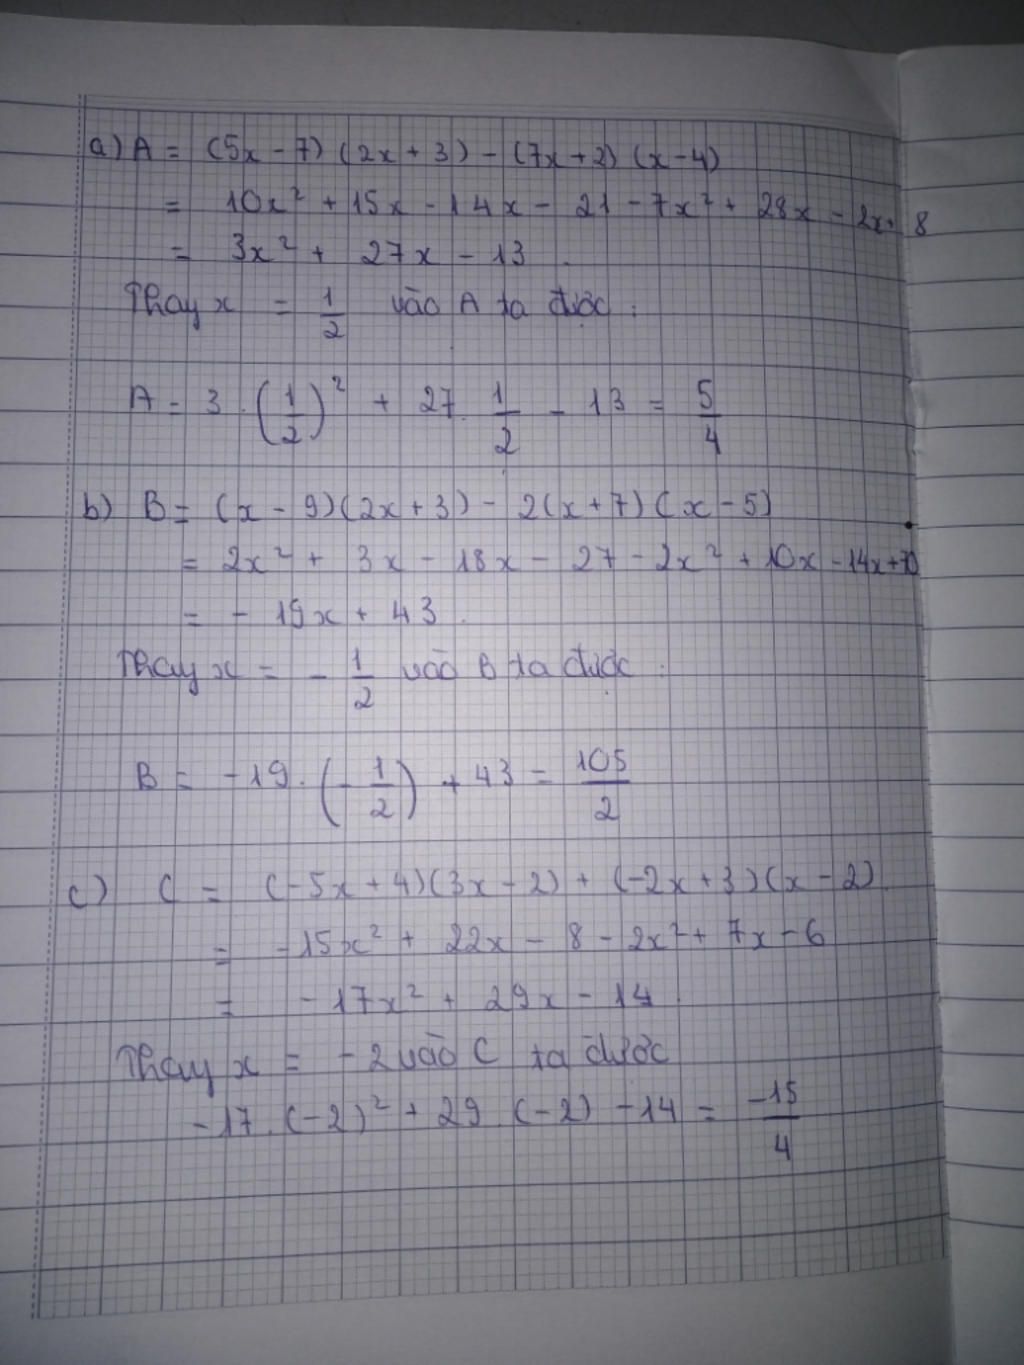 a) A = (5x - 7) (2x + 3) - (7x + 2) (x - 4)
= 10x² + 15x - 14x - 21 - 7x² + 28x - 2x + 8
= 3x² + 27x - 13.
Thay x = 1/2 vào A ta được :
A = 3 . (1/2)² + 27. 1/2 - 13 = 5/4
b) B = (x - 9)(2x + 3) - 2(x + 7)(x - 5)
= 2x² + 3x - 18x - 27 - 2x² + 10x - 14x + 70
= - 19x + 43.
Thay x = - 1/2 vào B ta được :
B = -19. (- 1/2) + 43 = 105/2
c) C = (-5x + 4)(3x - 2) + (-2x + 3)(x - 2)
= -15x² + 22x - 8 - 2x² + 7x - 6
= -17x² + 29x - 14
Thay x = -2 vào C ta được
-17. (-2)² + 29 (-2) - 14 = -15/4